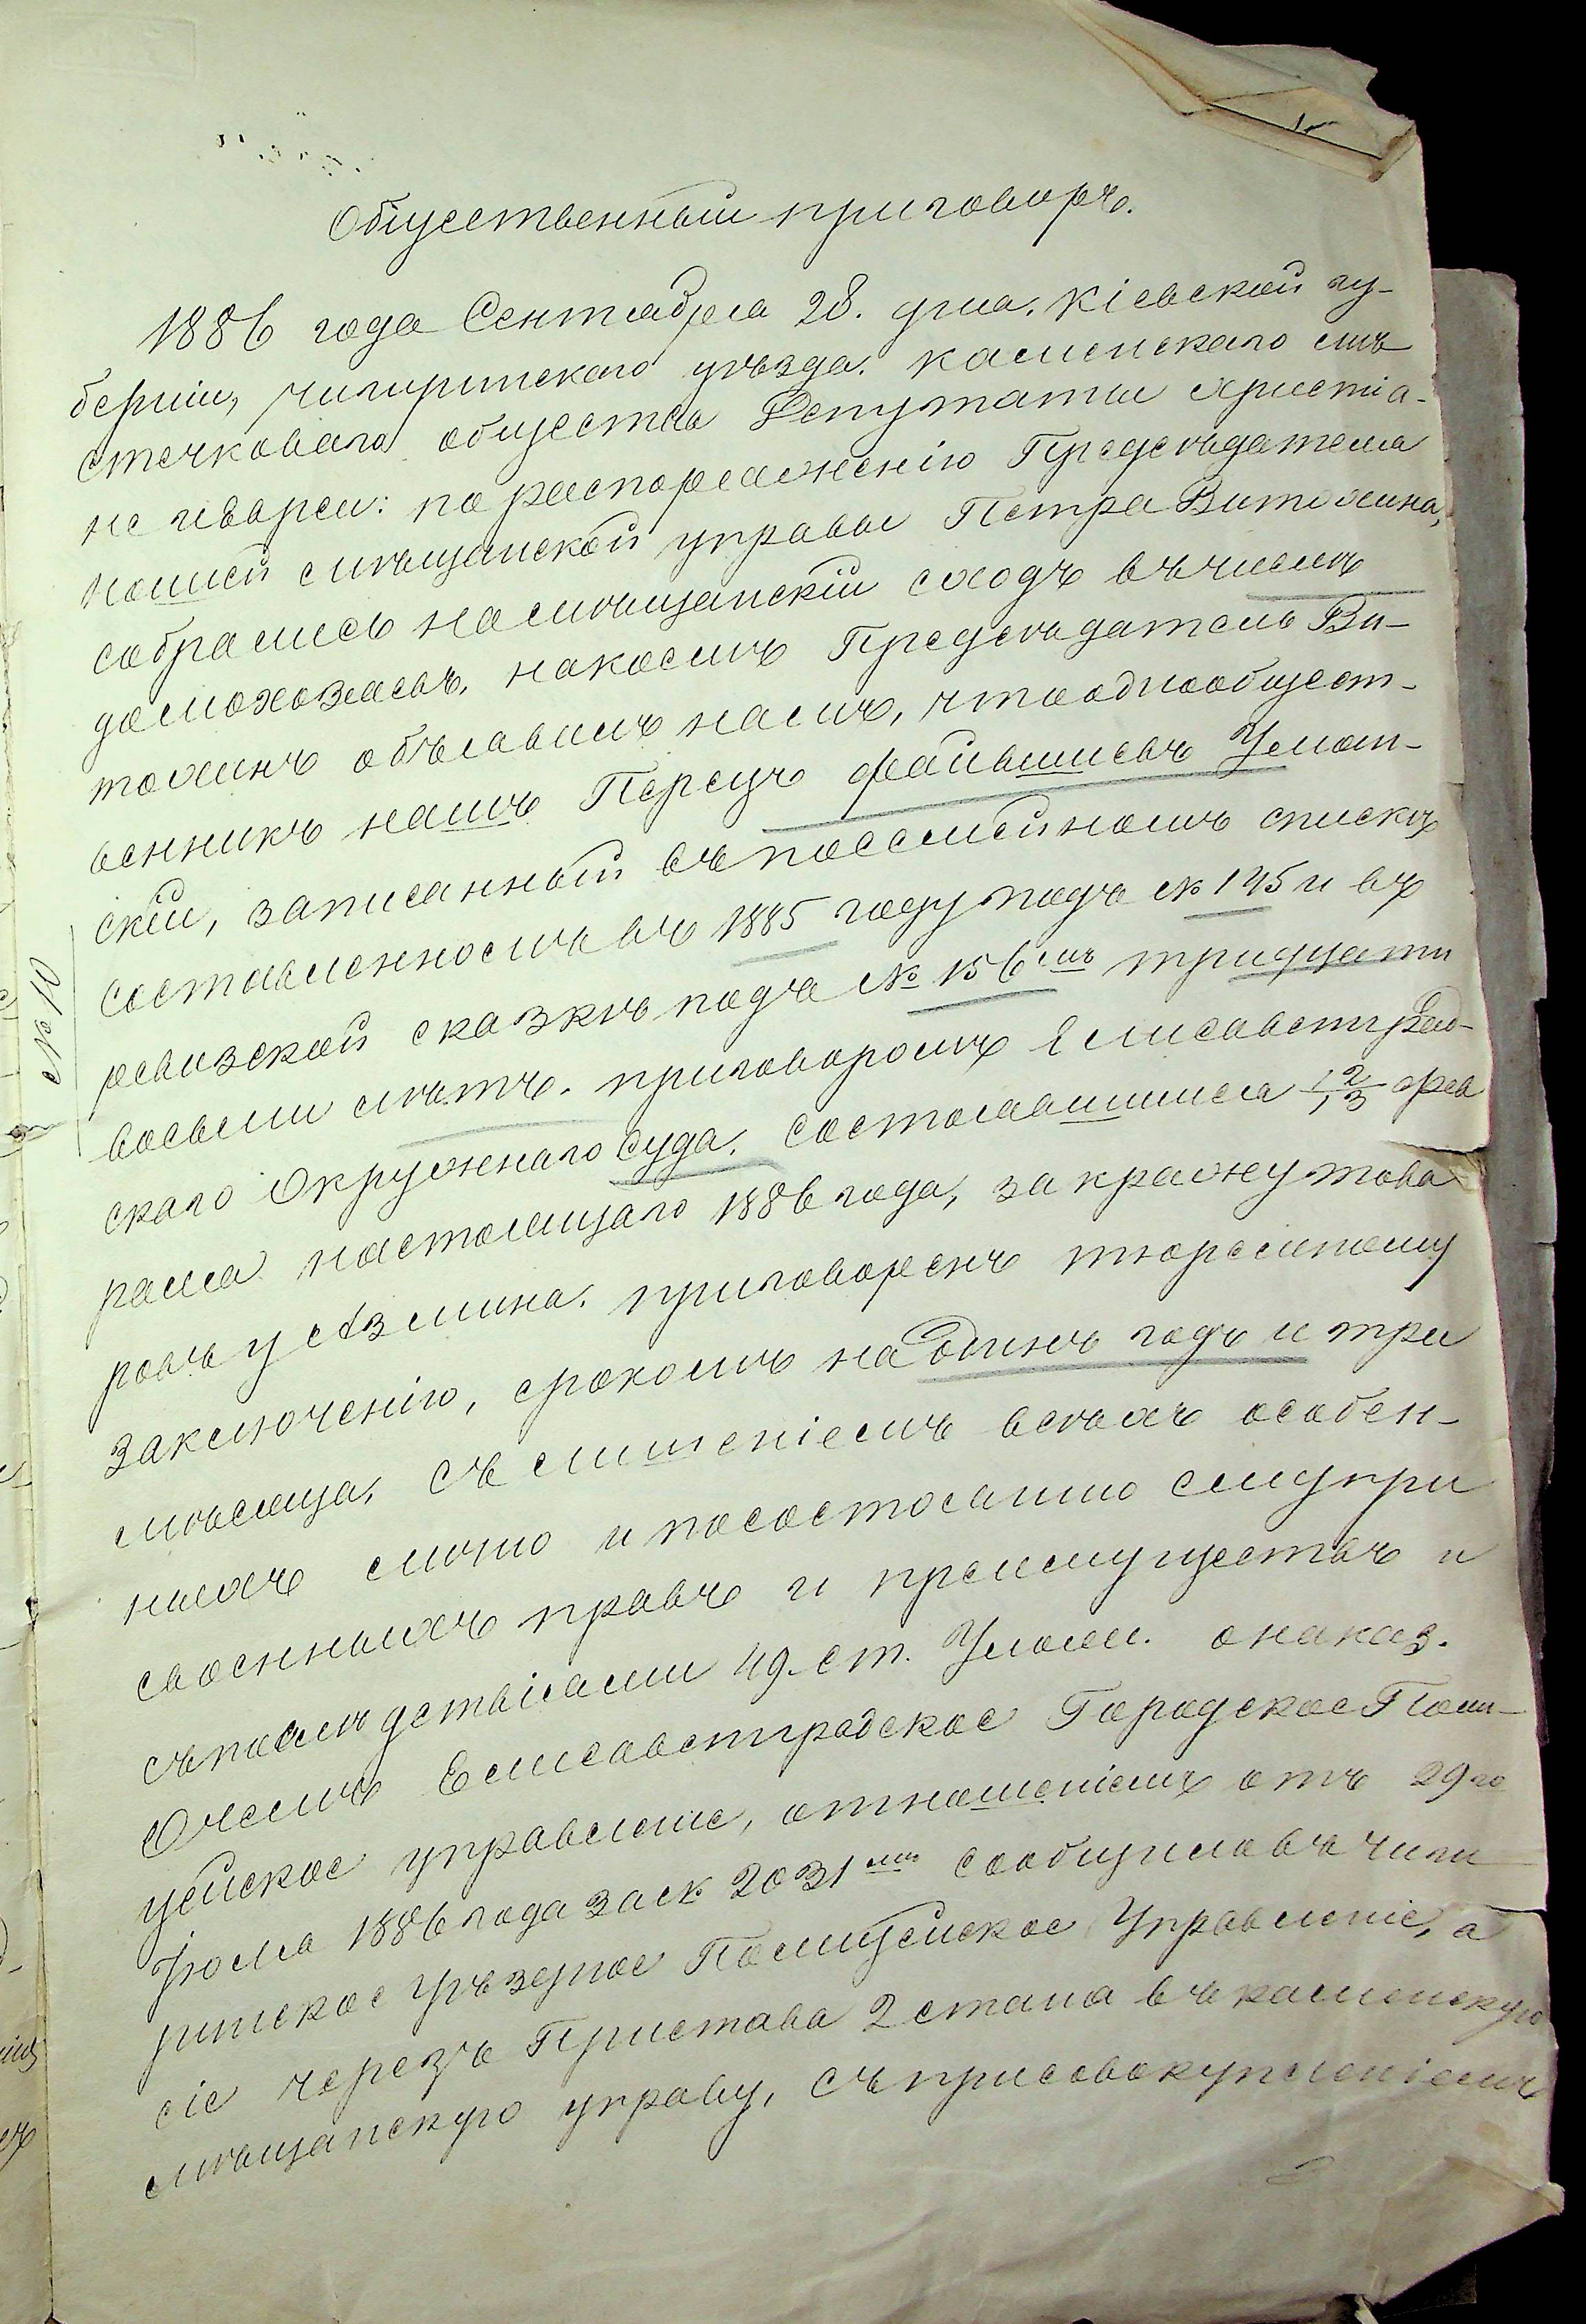 Общественный приговоръ.
1886 года Сентября 28. дня. Кіевской гу-
берніи, Чигиринскаго уѣзда. Каменскаго мѣ
стечковаго общества Депутаты Христіа-
не и Евреи: по распоряженію Предсѣдателя
нашей мѣщанской управы Петра Витохина,
собрались на мѣщанскій сходъ въ числѣ
домохозяевъ, на коемъ Предсѣдатель Ви-
тохинъ объявилъ намъ, что однообщест-
венникъ нашъ Перецъ Файвишевъ Уман-
скій, записанный въ посемейномъ спискѣ
составленномъ въ 1885 году подъ № 145 и въ
ревизской сказкѣ подъ № 156мъ тридцати
восьми лѣтъ. приговоромъ Елисаветград-
скаго Окружнаго суда. состоявшимся 12/13 фев
раля настоящаго 1886 года, за кражу това
ровъ у Азмина. приговоренъ тюремному
заключенію, срокомъ на Одинъ годъ и три
мѣсяца. съ лишеніемъ всѣхъ особен-
ныхъ лично и по состоянію ему при
своенныхъ правъ и преимуществъ и
съ послѣдствіями 49. ст. Улож. о наказ.
О чемъ Елисаветградское Городское Поли-
цейское управленіе, отношеніемъ отъ 29го
Іюля 1886 года за № 2031мъ сообщило въ Чиги
ринское Уѣздное Полицейское Управленіе, а
сіе черезъ Пристава 2 стана въ Каменскую
мѣщанскую управу, съ присовокупленіемъ
№ 10